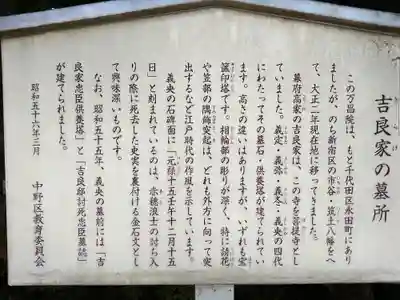 吉良家の墓所
この万昌院は、もと千代田区永田町にあり
ましたが、のち新宿区の市谷・筑土八幡をへ
て、大正二年現在地に移ってきました。
幕府高家の吉良家は、この寺を菩提寺とし
ていました。義定・義弥・義冬・義央の四代
にわたってその墓石・供養塔が建てられてい
ます。高さの違いはありますが、いずれも宝
篋印塔です。相輪部の彫りが深く、特に請花
や笠部の隅飾突起は、どれも外方に向って突
出するなど江戸時代の作風を示しています。
義央の石碑面に「元禄十五壬午十二月十五
日」と刻まれているのは、赤穂浪士の討ち入
りの際に死去した史実を裏付ける金石文とし
て興味深いものです。
なお、昭和五十五年、義央の墓前には「吉
良家忠臣供養塔」と「吉良邸討死忠臣墓誌」
が建てられました。
昭和五十六年三月
中野区教育委員会